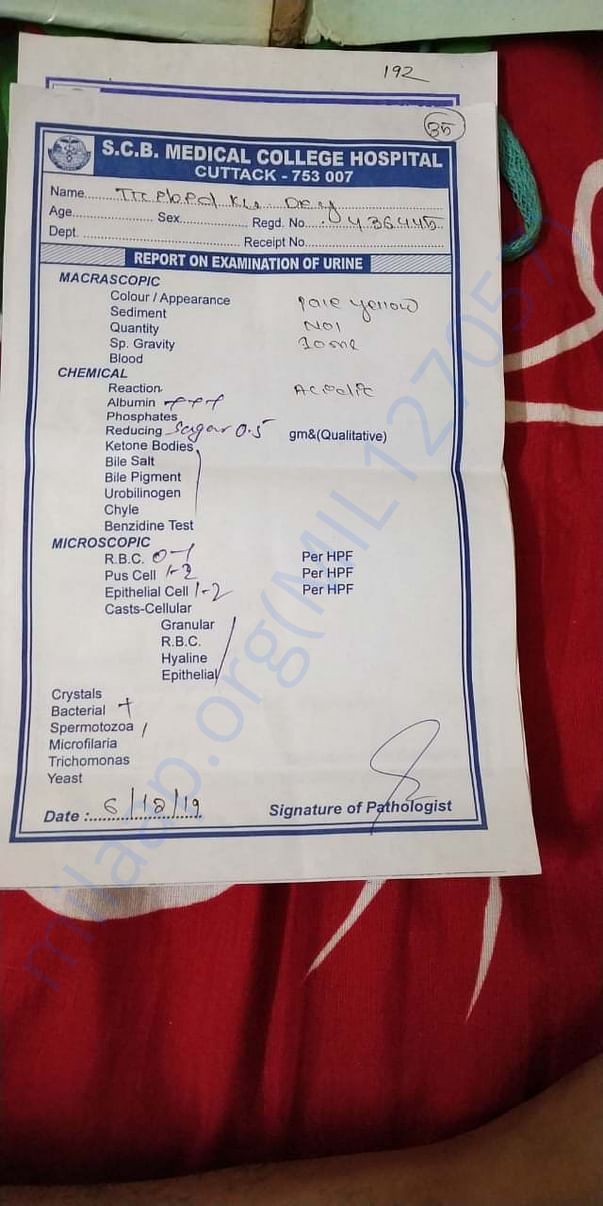 192
35
S.C.B. MEDICAL COLLEGE HOSPITAL
CUTTACK - 753 007
Name.......... Dey
Age.................... Sex.................... Regd. No. 436445
Dept. .................................... Receipt No....................................
REPORT ON EXAMINATION OF URINE
MACRASCOPIC
Colour / Appearance pale yellow
Sediment
Quantity
Sp. Gravity
Blood
CHEMICAL
Reaction Acidic
Albumin +++
Phosphates
Reducing Sugar 0.5 gm&(Qualitative)
Ketone Bodies
Bile Salt
Bile Pigment
Urobilinogen
Chyle
Benzidine Test
MICROSCOPIC
R.B.C. 0-1 Per HPF
Pus Cell 1-2 Per HPF
Epithelial Cell 1-2 Per HPF
Casts-Cellular
Granular
R.B.C.
Hyaline
Epithelial
Crystals
Bacterial +
Spermotozoa
Microfilaria
Trichomonas
Yeast
Date :.. 6/12/19 Signature of Pathologist
milaap.org(MIL127057)